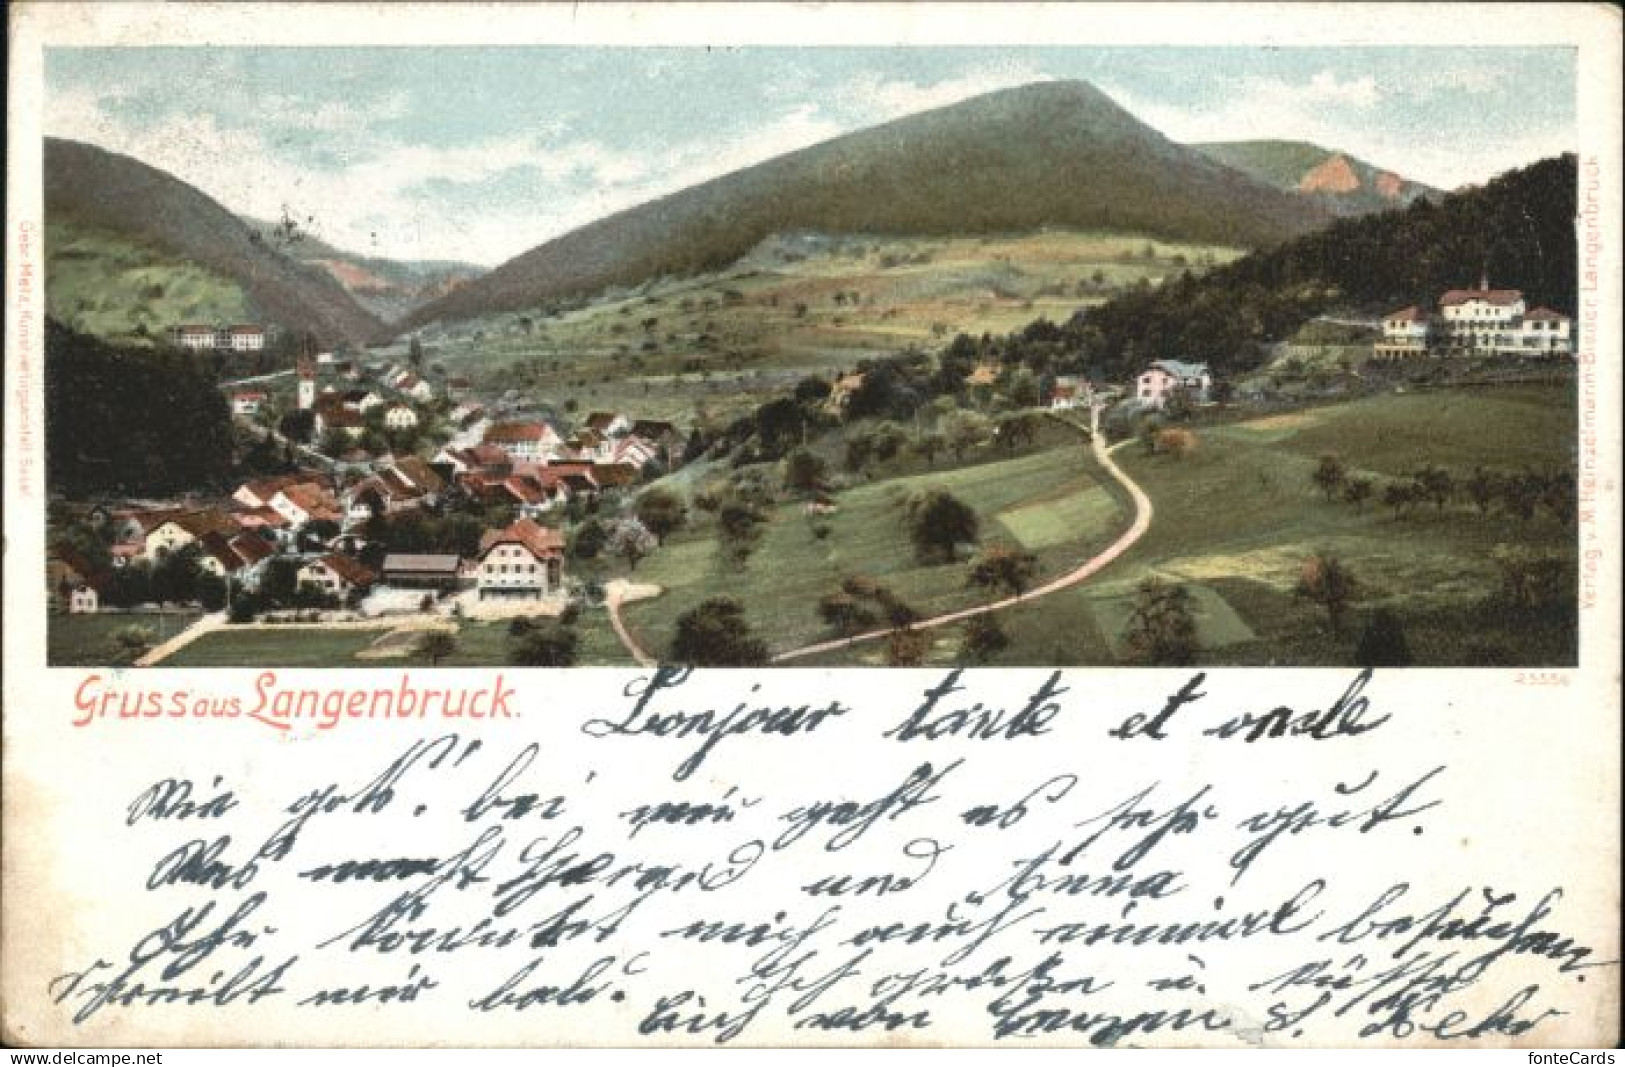 Gebr. Metz, Kunstverlagsanstalt Basel
Verlag v. M. Heinzelmann-Bieder, Langenbruck
23556
Gruss aus Langenbruck.
Bonjour tante et oncle
Wie gots! bei mir geht es sehr gut.
Was macht und Anna!
Ihr könntet mich auch einmal besuchen.
Schreibt mir bald. Ich grüße u. küsse
Euch von Herzen
fonteCards